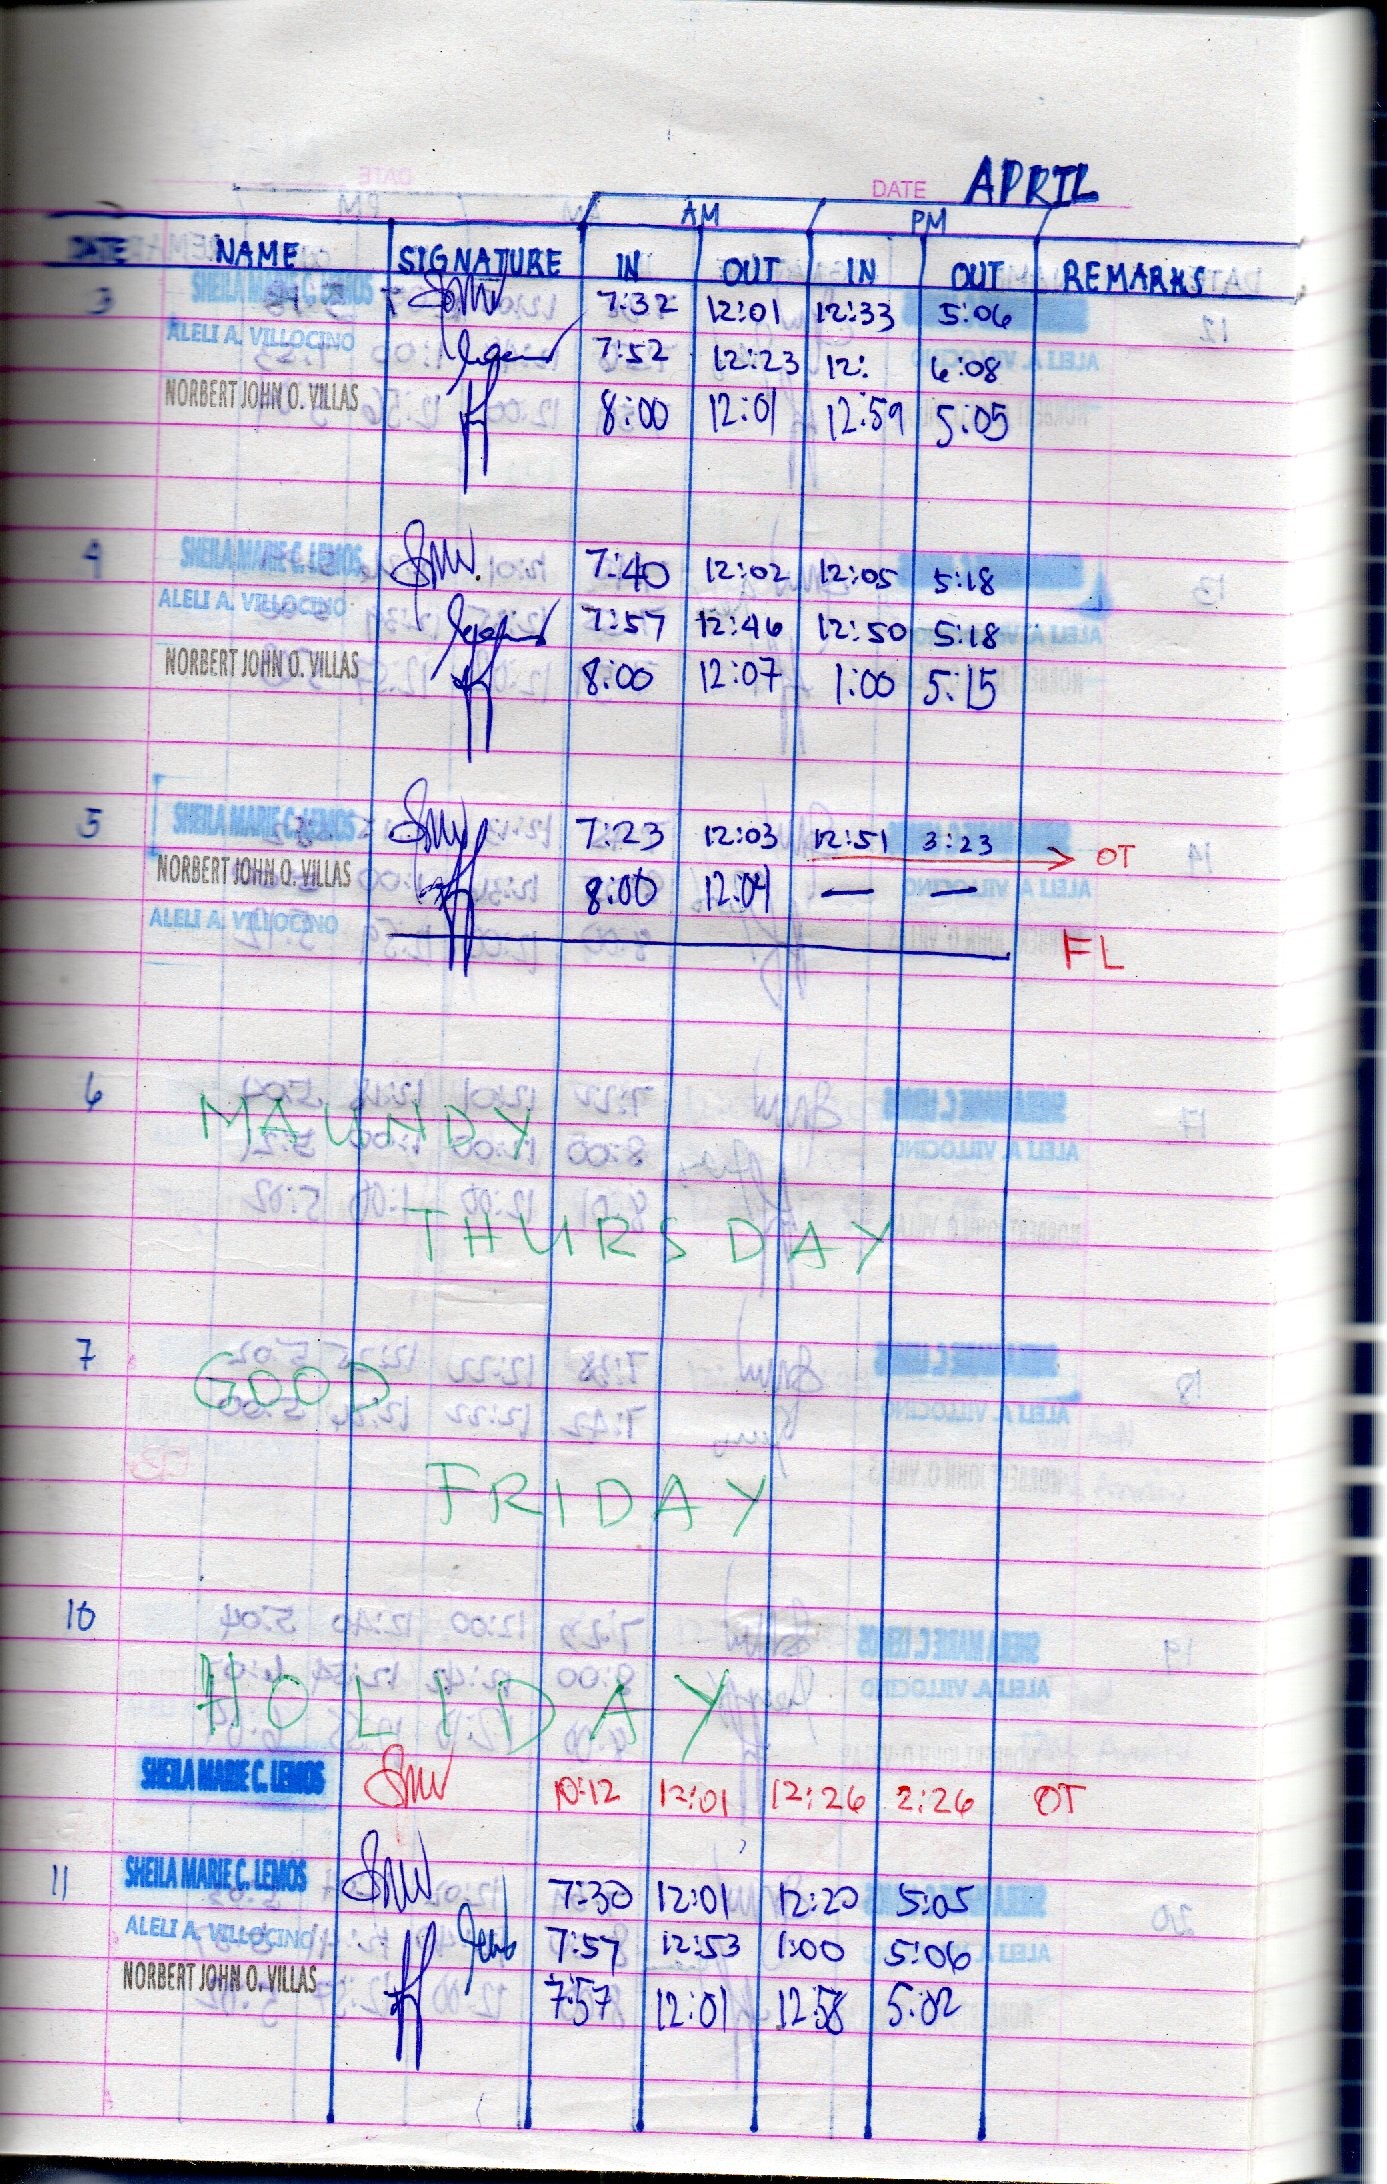 DATE APRIL
AM PM
DATE NAME SIGNATURE IN OUT IN OUT REMARKS
3 SHEILA MARIE C. LEMOS 7:32 12:01 12:33 5:06
ALELI A. VILLOCINO 7:52 12:23 12: 6:08
NORBERT JOHN O. VILLAS 8:00 12:01 12:59 5:05
4 SHEILA MARIE C. LEMOS 7:40 12:02 12:05 5:18
ALELI A. VILLOCINO 7:57 12:46 12:50 5:18
NORBERT JOHN O. VILLAS 8:00 12:07 1:00 5:15
5 SHEILA MARIE C. LEMOS 7:23 12:03 12:51 3:23 OT
NORBERT JOHN O. VILLAS 8:00 12:04 — —
ALELI A. VILLOCINO FL
6 MAUNDY
THURSDAY
7 GOOD
FRIDAY
10
HOLIDAY
SHEILA MARIE C. LEMOS 10:12 12:01 12:26 2:26 OT
11 SHEILA MARIE C. LEMOS 7:30 12:01 12:20 5:05
ALELI A. VILLOCINO 7:57 12:53 1:00 5:06
NORBERT JOHN O. VILLAS 7:57 12:01 12:58 5:02